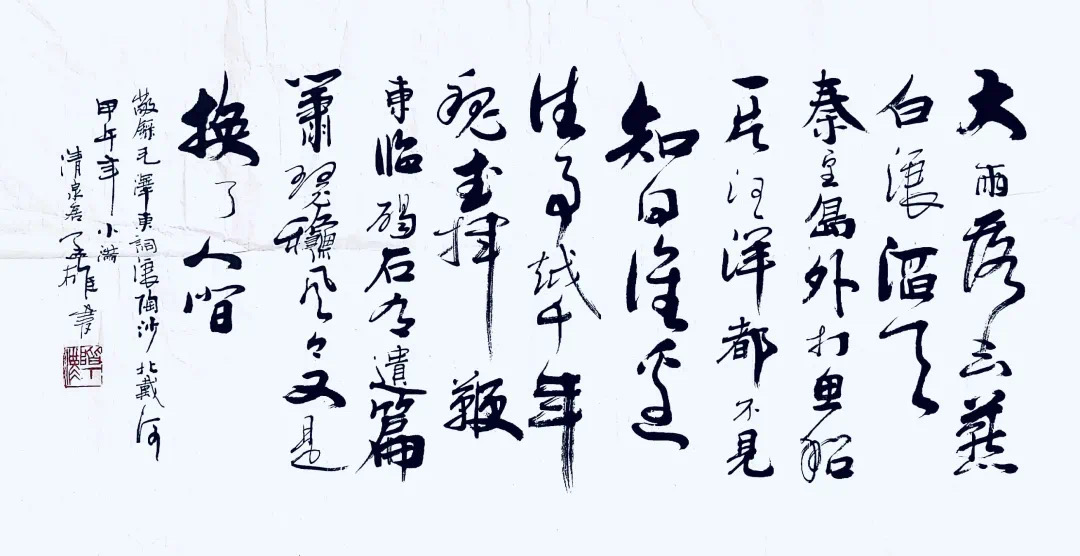 大雨落幽燕
白浪滔天
秦皇島外打魚船
一片汪洋都不見
知向誰邊
往事越千年
魏武揮鞭
東臨碣石有遺篇
蕭瑟穐風今又是
换了人間
敬錄毛澤東詞浪陶沙北戴河
甲午年小滿
清泉居孟雄書